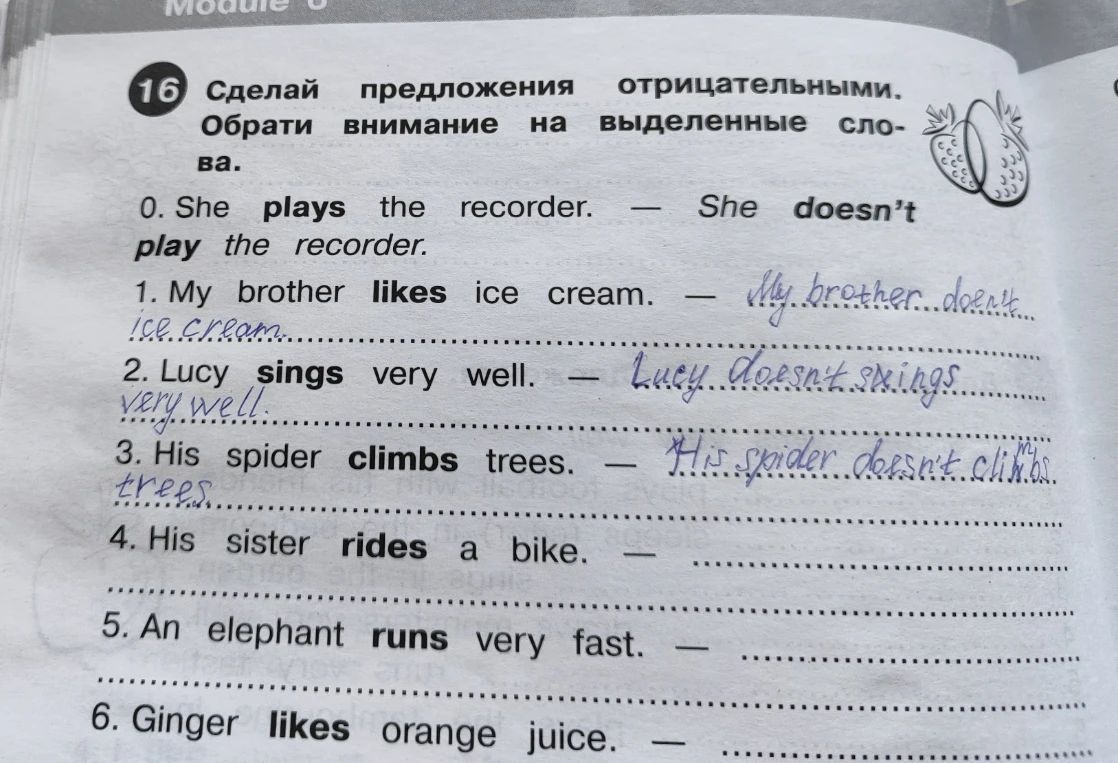 Module 8
16 Сделай предложения отрицательными.
Обрати внимание на выделенные сло-
ва.
0. She plays the recorder. — She doesn't
play the recorder.
1. My brother likes ice cream. — My brother doen't
ice cream.
2. Lucy sings very well. — Lucy doesn't sings
very well.
3. His spider climbs trees. — His spider doesn't climbs
trees.
4. His sister rides a bike. —
5. An elephant runs very fast. —
6. Ginger likes orange juice. —